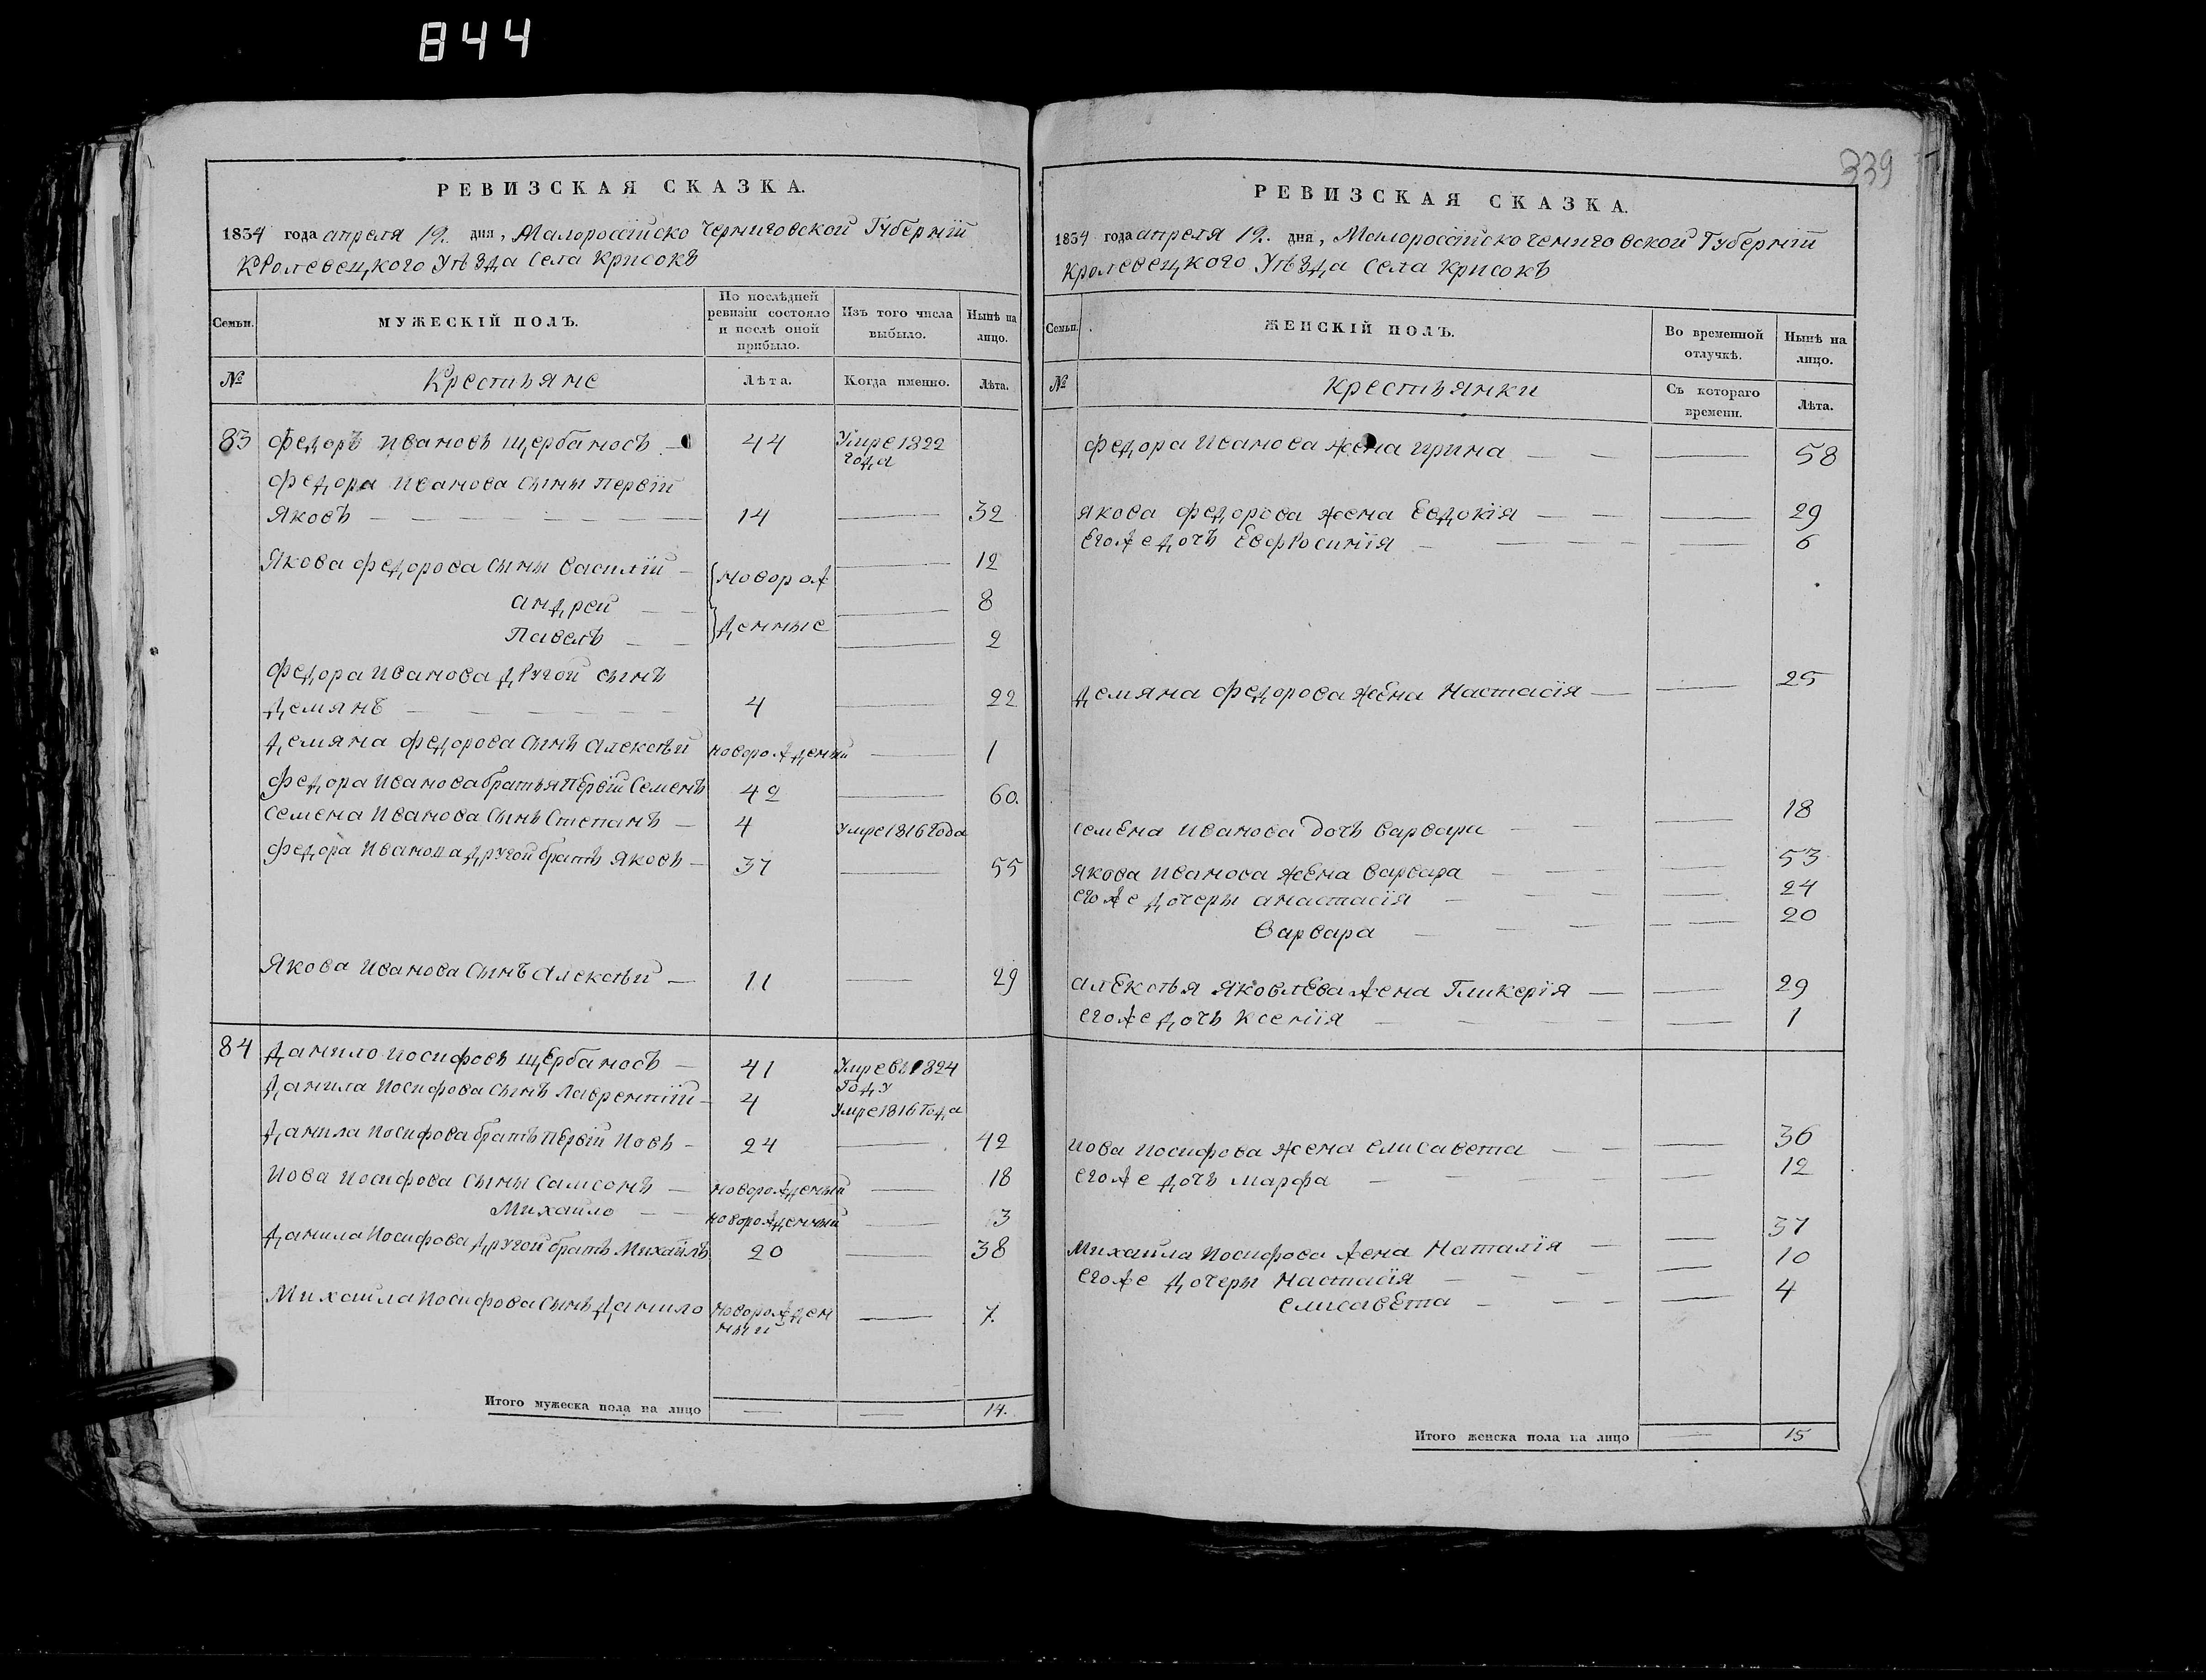 844
339
РЕВИЗСКАЯ СКАЗКА.
1834 года апреля 19. дня, Малоросоїйско Черниговской Губернїи
Кролевецкого Уѣзда Села Крисокъ
Семьи. МУЖЕСКІЙ ПОЛЪ. По послѣдней ревизіи состояло и послѣ оной прибыло. Изъ того числа выбыло. Нынѣ на лицо.
№ Крестьяне Лѣта. Когда именно. Лѣта.
83 Федоръ Ивановъ Щербаносъ — 44 Умре 1822 года
Федора Иванова сыны Первїй
Яковъ — 14 — 32
Якова Федорова сыны Василїй — новорож — 12
Андрей — — 8
Павелъ — денные — 2
Федора Иванова другой сынъ
Демянъ — 4 — 22
Демяна Федорова сынъ Алексѣй новорожденый — 1
Федора Иванова братья Первїй Семенъ 42 — 60.
Семена Иванова сынъ Степанъ — 4 Умре 1816 года
Федора Иванова другой братъ Яковъ — 37 — 55
Якова Иванова сынъ Алексѣй — 11 — 29
84 Данило Иосифовъ Щербаносъ — 41 Умре въ 1824 Году
Данила Иосифова сынъ Лаврентїй — 4 Умре 1816 Года
Данила Иосифова братъ Первїй Иовъ — 24 — 42
Иова Иосифова сыны Самсонъ — новорожденый — 18
Михайло — новорожденный — 13
Данила Иосифова другой братъ Михайлъ 20 — 38
Михайла Иосифова сынъ Данило новорожден ный — 7.
Итого мужеска пола на лицо — — 14.
РЕВИЗСКАЯ СКАЗКА.
1834 года апреля 19. дня, Малоросоїйско Чениговской Губернїи
Кролевецкого Уѣзда Села Крисокъ
Семьи. ЖЕНСКІЙ ПОЛЪ. Во временной отлучкѣ. Нынѣ на лицо.
№ Крестьянки Съ котораго времени. Лѣта.
Федора Иванова жена Ирина — — — 58
Якова Федорова жена Евдокїя — — — 29
Егоже дочь Евфросинїя — — — 6
Демяна Федорова жена Настасїя — — 25
Семена Иванова дочь Варвара — — — 18
Якова Иванова жена Варвара — — — 53
Егоже дочеры Анастасїя — — — 24
Варвара — — — 20
Алексѣя Яковлева жена Гликерїя — — 29
Егоже дочь Ксенїя — — — 1
Иова Иосифова жена Елисавета — — — 36
Егоже дочь Марфа — — — 12
Михайла Иосифова жена Наталїя — — 37
Егоже дочеры Настасїя — — — 10
Елисавета — — — 4
Итого женска пола на лицо — 15